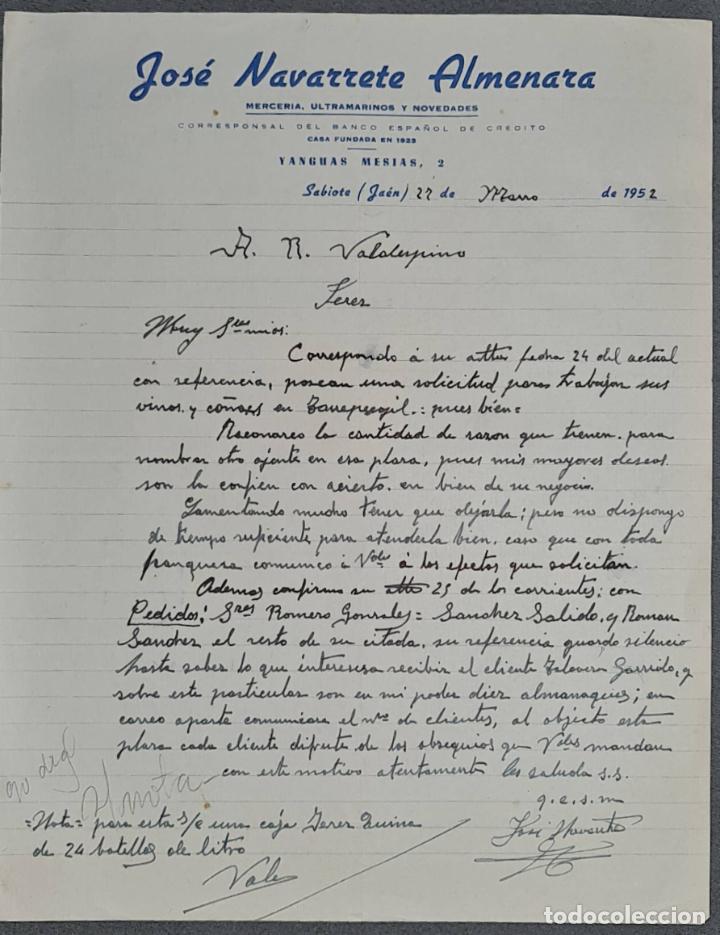 José Navarrete Almenara
MERCERIA, ULTRAMARINOS Y NOVEDADES
CORRESPONSAL DEL BANCO ESPAÑOL DE CREDITO
CASA FUNDADA EN 1923
YANGUAS MESIAS, 2
Sabiote (Jaén) 27 de Marzo de 1952
A. R. Valdespino
Jerez
Muy Sres mios:
Correspondo á su attª fecha 24 del actual
con referencia, posean una solicitud para trabajar sus
vinos, y coñacs en Torreperogil.: pues bien=
Raconozco la cantidad de razon que tienen. para
nombrar otro ajente en esa plaza, pues mis mayores deseos
son la confien con acierto. en bien de su negocio.
Lamentando mucho tener que dejarla; pero no dispongo
de tiempo suficiente para atenderla bien. caso que con toda
franqueza comunico á Vdes á los efectos que solicitan.
Ademas confirmo su 25 de los corrientes; con
Pedidos! Sres Romero Gonzales= Sanchez Salido, y Roman
Sanchez el resto de su citada, su referencia guardo silencio
hasta saber lo que interesa recibir el cliente Talavera Garrido, y
sobre este particular son en mi poder diez almanaques; en
correo aparte comunicare el nº de clientes, al objecto esta
plaza cada cliente difrute de los obsequios que Vdes mandan
con este motivo atentamente les saluda s.s.
q.e.s.m
José Navarrete
=Nota= para esta s/c una caja Jerez Quina
de 24 botellas de litro
Vale
todocoleccion